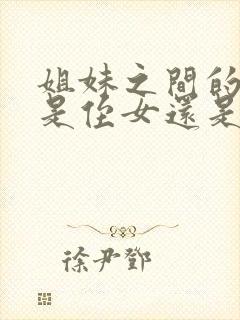 姐妹之間的
是侄女還是
徐尹鄧